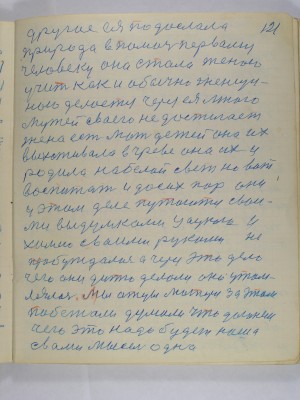 121
другое ея подослала
природа в помощ первому
человеку она стала женою
учит как и обычно женщи-
ною делоету через ея много
мужей своего не достигает
жена ест мат детей она их
выхтивала в греве она их и
родила на белой свет но вот
воспитат и досих пор они
у этом деле путоиту свои-
ми выдумками и наукой
хотим своими рукоми не
пробуждался а через это дело
чего они дить делоли они утом-
лялися. Мы отуй мостуи за этим
побежали думали что должен
чего это надо будет наша
свами мысел одна